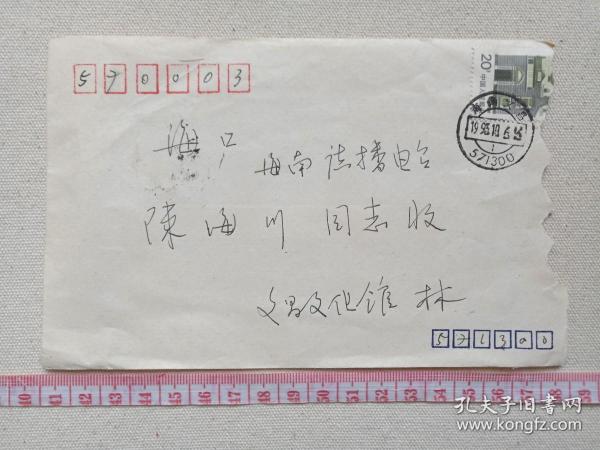 570003
20分
中国人
1993.10.
571300
海口
海南广播电台
陳海川 同志收
文昌文化館 林
571300
40 41 42 43 44 45 46 47 48 49 50 51 52 53 54 55 56 57 58
孔夫子旧书网
www.kongfz.com